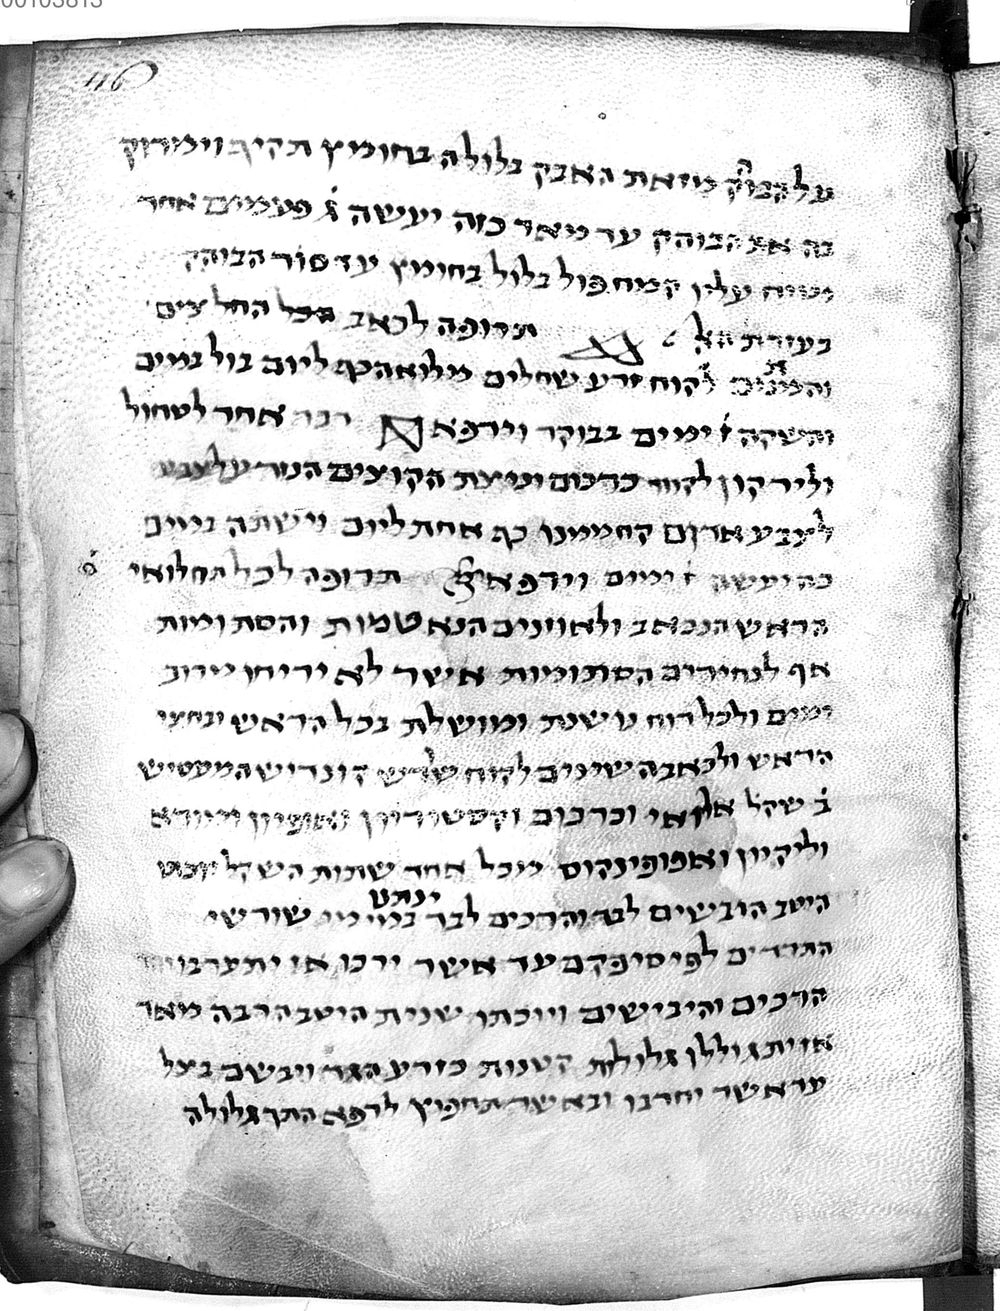 00103813
116
על הבוהק מזאת האבק בלולה בחומיץ תקיף וימרוק
בה את הבוהק עד מאד כזה יעשה ג פעמים אחר
ישוח עליו קמח פול בלול בחומיץ עד סור הבוהק
בעזרת האל תרופה לכאב בכל החלצים
והמתנים לקוח זרע שחלים מלוא הכף ליום בול במים
והשקה ז ימים בבוקר וירפא דבר אחר לטחול
ולירקון לקוח כרכום ונוצת הקוצים הנמר על צבע
לצבע אדום קח ממנו כף אחת ליום וישתה במים
כה יעשה ז ימים וירפא תרופה לכל תחלואי
הראש הנכאב ולאוזנים הנאטמות והסתומות
אף לנחירים הסתומות אשר לא יריחו מרוב
ימים ולכל רוח נושנת ומושלת בכל הראש ובחצי
הראש ולכאבה שינים לקוח שלש קונדיש המעטיש
ב שקל אלואי וכרכום וקסטוריון ואופיון ומורא
וליקיון ואפופינקוס מכל אחד שתות השקל
היטב היבשים לבד והרכים לבד במימי שורשי
ינתט
התרדים לפי סיפקם עד אשר ירכו אז יתערבו
הרכים והיבישים ויוכתו שנית היטב הרבה מאד
אז יתגוללו גלולת קטנות כזרע הגד ויבשם בצל
עד אשר יחרבו ובאשר תחפוץ לרפא התך גלולה